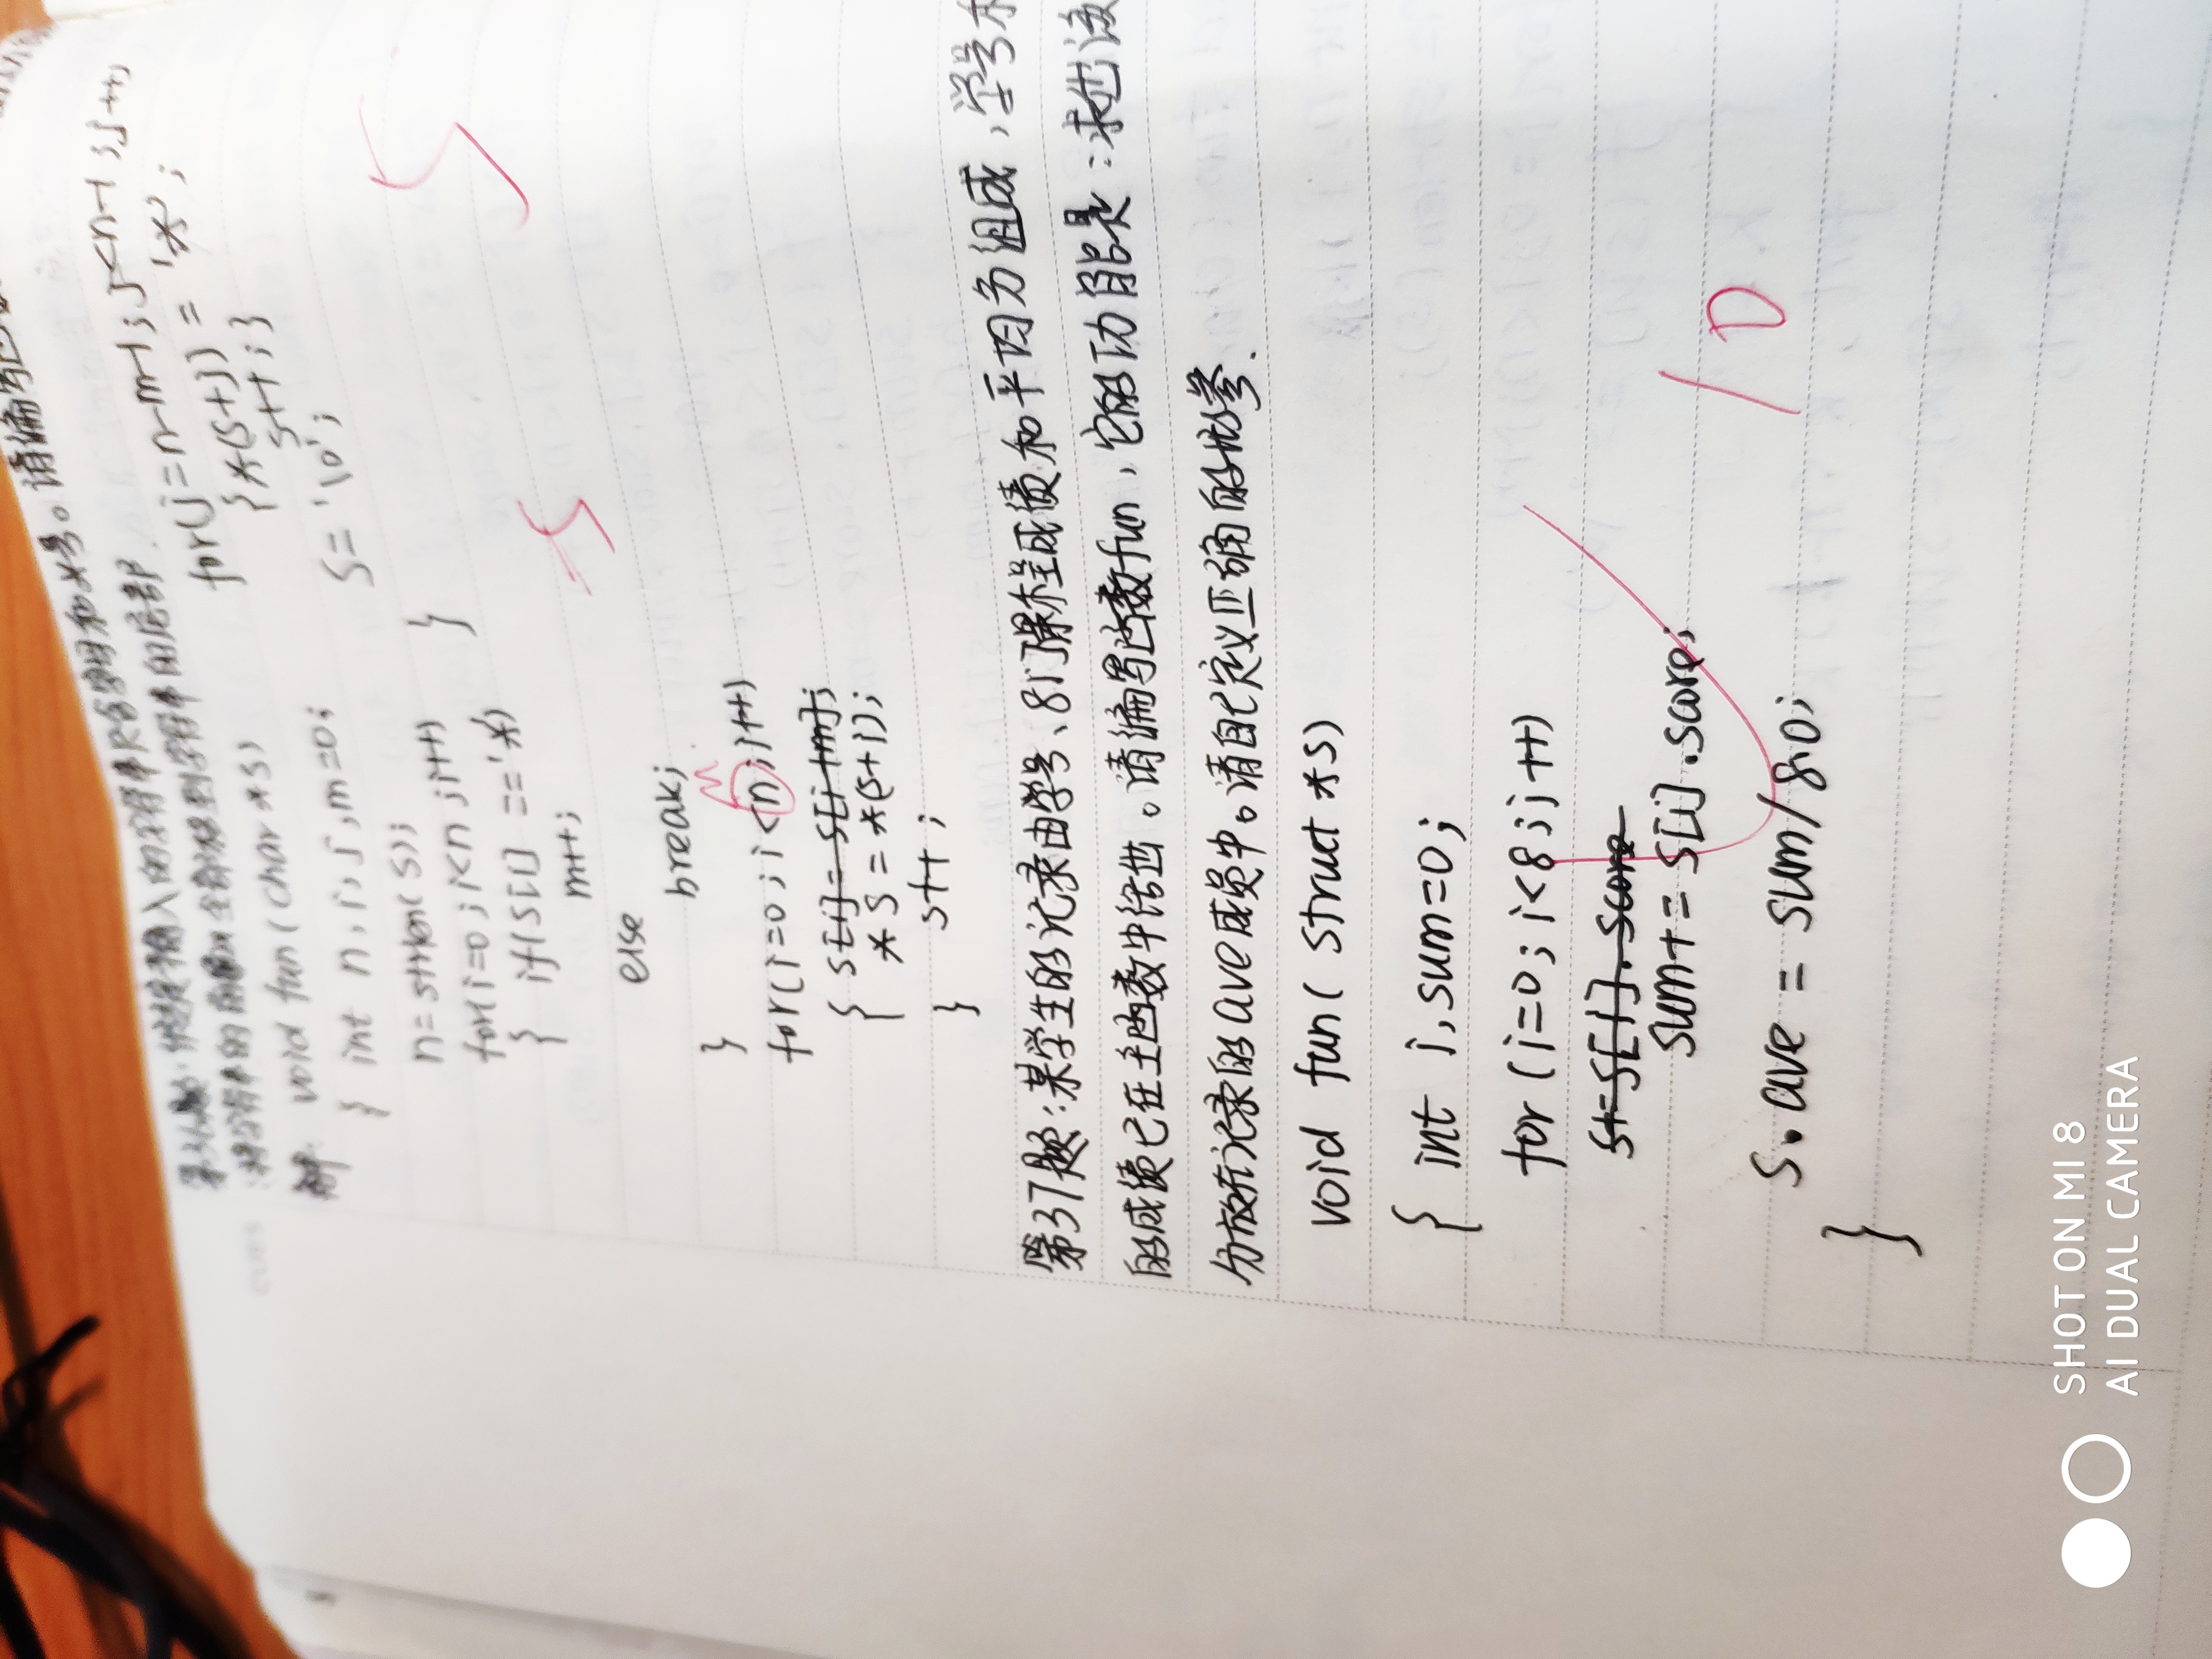 第36题:假定输入的字符串只含字母和*号。请编写函数
:将字符串的前导*全部移到字符串的尾部.
解: void fun(char *s)
{ int n,i,j,m=0;
n=strlen(s);
for(i=0;i<n;i++)
{ if(s[i]=='*')
m++;
else
break;
}
m
for(i=0;i<n;i++)
{ s[i]=s[i+m];
*s=*(s+i);
s++;
}
for(j=n-m-1;j<n-1;j++)
{*(s+j)='*';
s++;}
s='\0';
}
-5
5
第37题:某学生的记录由学号、8门课程成绩和平均分组成,学号
的成绩已在主函数中给出。请编写函数fun,它的功能是:求出该
分放在记录的ave成员中。请自己定义正确的形参.
void fun( struct *s)
{ int i,sum=0;
for(i=0;i<8;i++)
s+=s[i].score
sum+=s[i].score;
s.ave = sum/8.0;
}
10
SHOT ON MI 8
AI DUAL CAMERA